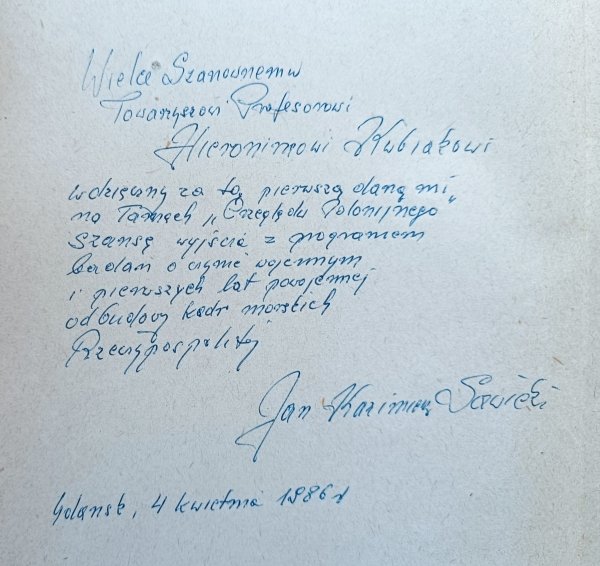 Wielce Szanownemu
Towarzyszowi Profesorowi
Hieronimowi Kubiakowi
wdzięczny za tę pierwszą daną mi
na łamach „Przeglądu Polonijnego”
szansę wyjścia z programem
badań o czynie wojennym
i pierwszych lat powojennej
odbudowy kadr morskich
Rzeczypospolitej
Jan Kazimierz Sawicki
Gdańsk, 4 kwietnia 1986 r